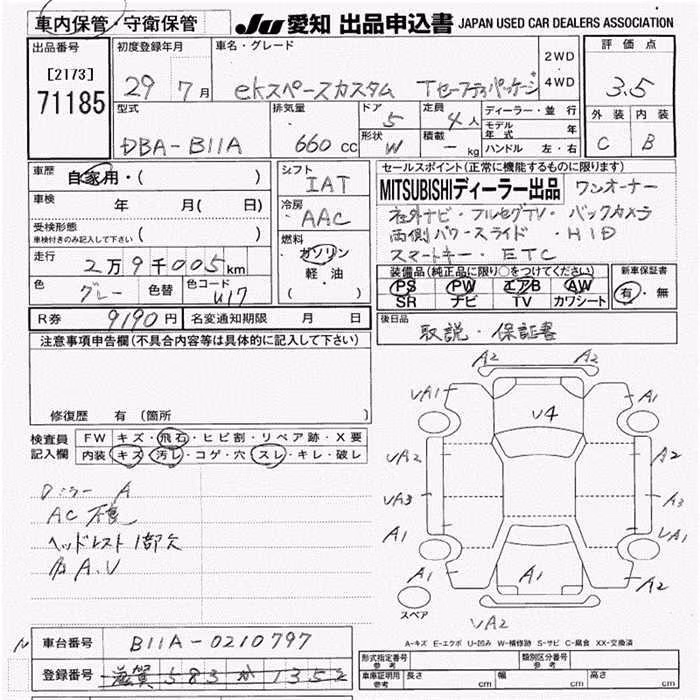 車内保管・守衛保管 JU 愛知 出品申込書 JAPAN USED CAR DEALERS ASSOCIATION
出品番号 初度登録年月 車名・グレード 2WD 評価点
[2173] 29 7月 ekスペースカスタム Tセーフティパッケージ 4WD 3.5
71185 型式 排気量 ドア 5 定員 4人 ディーラー・並行 外装 内装
DBA-B11A 660cc 形状 W 積載 -kg モデル年式 年 C B
ハンドル 左・右
車歴 自家用・( ) シフト IAT セールスポイント(正常に機能するものに限ります)
車検 年 月( 日) 冷房 AAC MITSUBISHIディーラー出品 ワンオーナー
受検形態 車検付きのみ記入して下さい ( ) 社外ナビ・フルセグTV・バックカメラ
走行 2万9千005km 燃料 ガソリン 両側パワースライド・HID
軽・油 スマートキー・ETC
色 グレー 色替 色コード U17 ( ) 装備品(純正品に限り○をつけてください) 新車保証書
PS PW エアB AW 有・無
SR ナビ TV カワシート
R券 9190円 名変通知期限 月 日 後日品 取説・保証書
注意事項申告欄(不具合内容等は具体的に記入して下さい)
修復歴 有(箇所 )
検査員 FW キズ・飛石・ヒビ割・リペア跡・X要
記入欄 内装 キズ・汚レ・コゲ・穴・スレ・キレ・破レ
A
AC不良
ヘッドレスト1部欠
A.U
A2 A2
UA1 A1
U4
UA2 A2
UA3 A3
A1 UA1
A1 A1 A2
スペア
UA2
A-キズ E-エクボ U-凹み W-補修跡 S-サビ C-腐食 XX-交換済
車台番号 B11A-0210797
登録番号 滋賀 583 か 1352
形式指定番号 参考 類別区分番号 参考
車庫証明用 参考 長さ cm 幅 cm 高さ cm